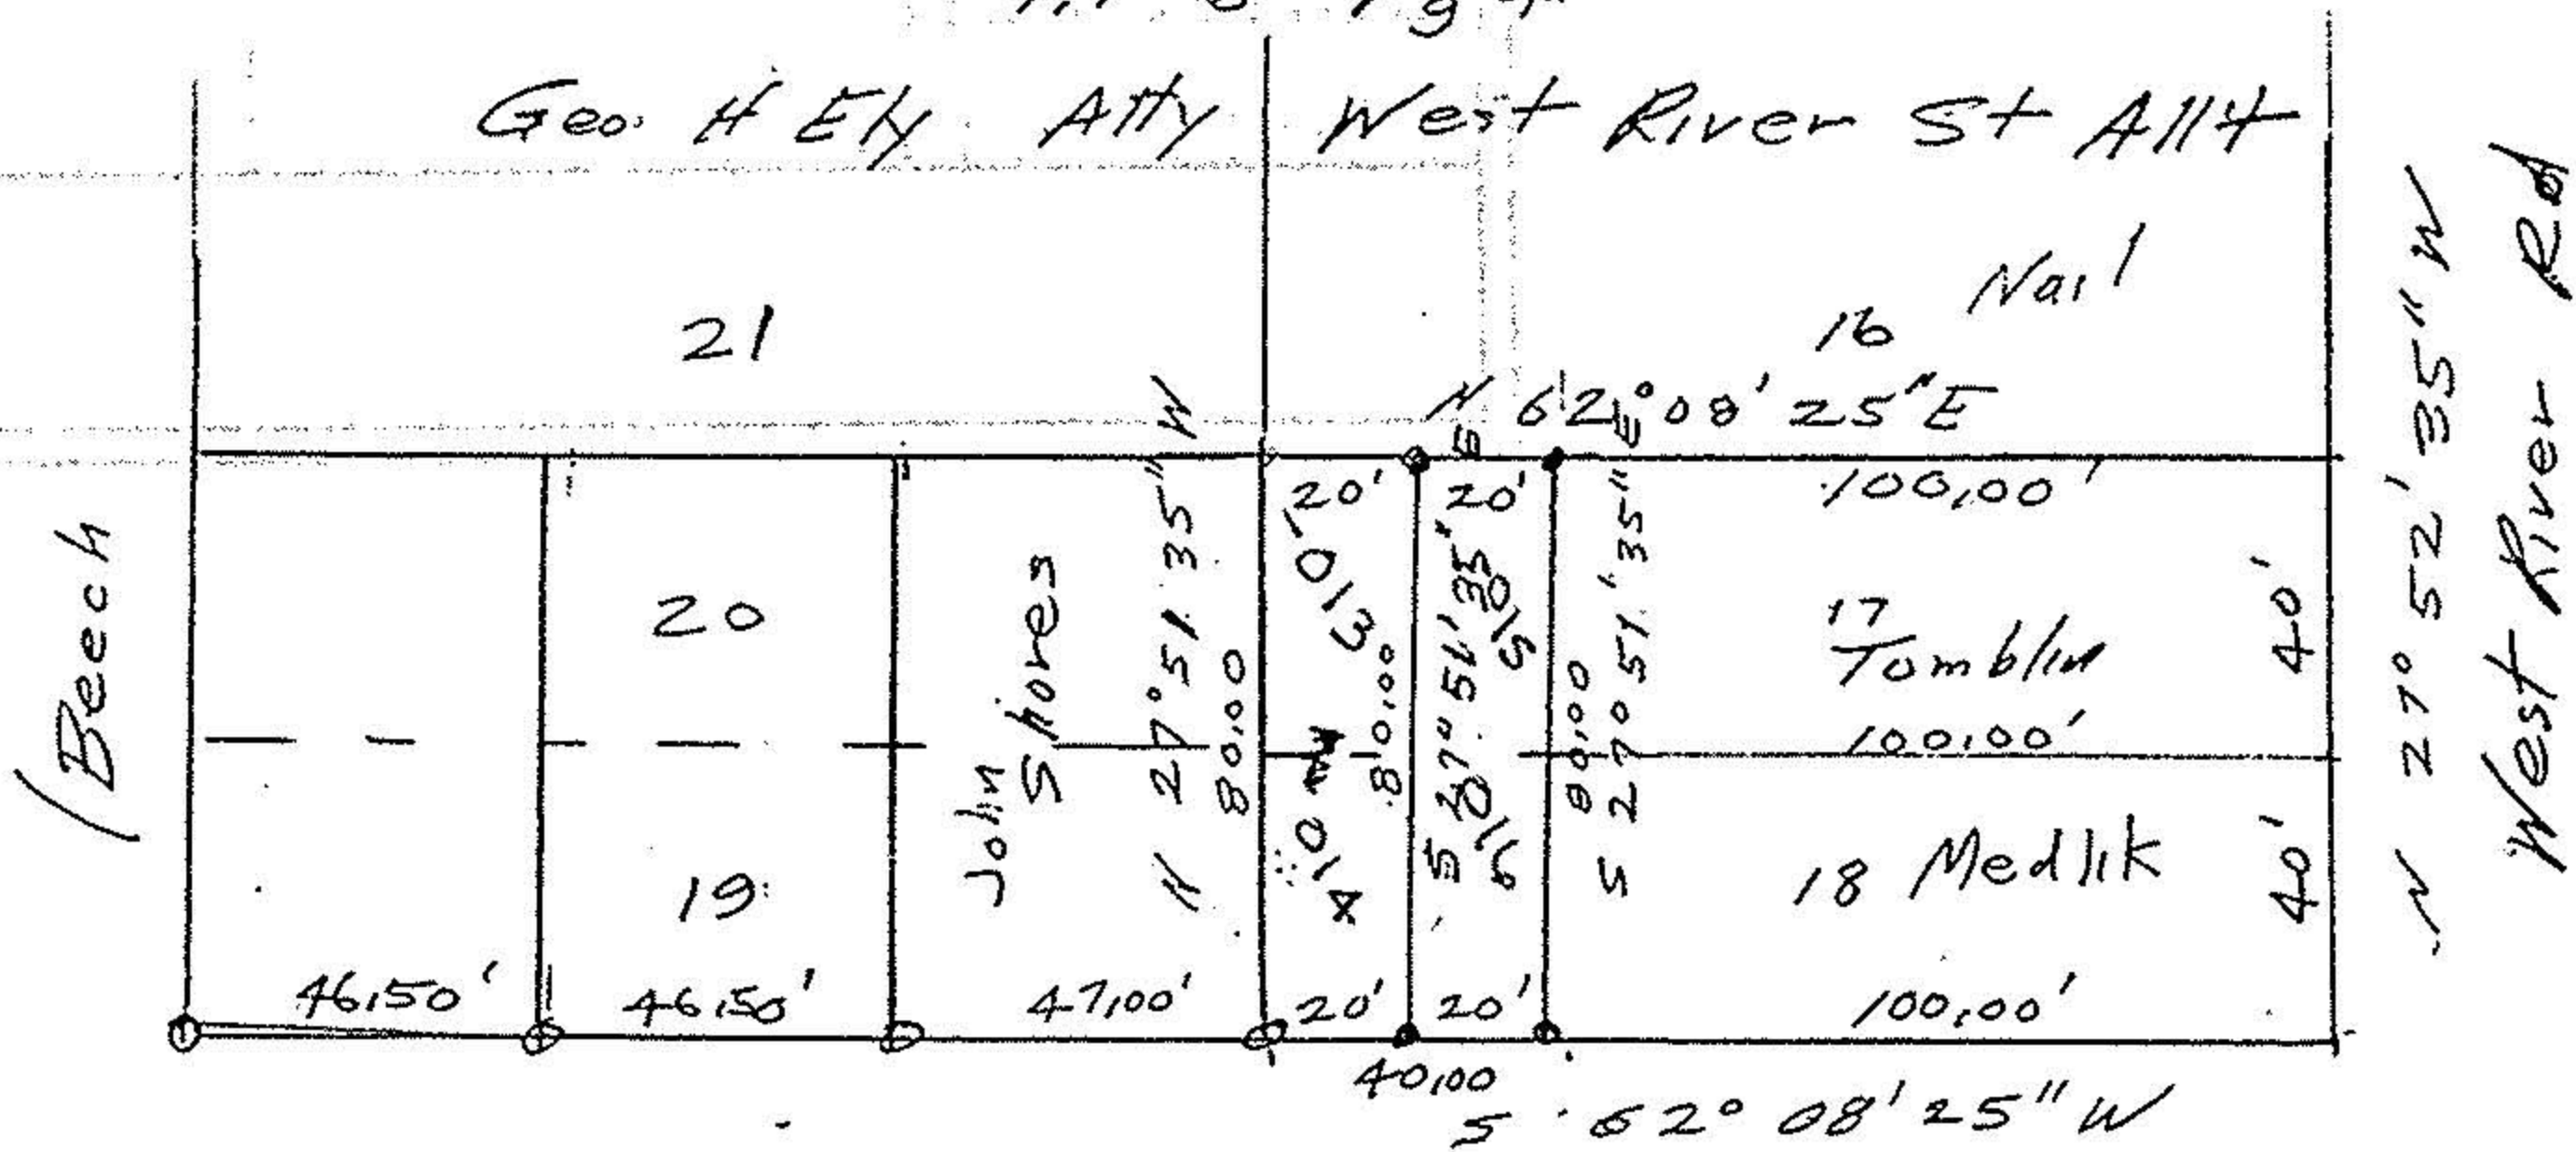 Geo. H Ely Atty West River St Allt
21
16 Nail
N 62° 08' 25" E
20' 20' 100,00'
Beech
20
John Shores
N 27° 51' 35" W
80,00
80,00
S 27° 51' 35" E
80,00
S 27° 51' 35" E
17
Tomblin
40'
100,00'
19
18 Medlik
40'
N 27° 52' 35" W
West River Rd
46,50' 46,50' 47,00' 20' 20' 100,00'
40,00
S 62° 08' 25" W